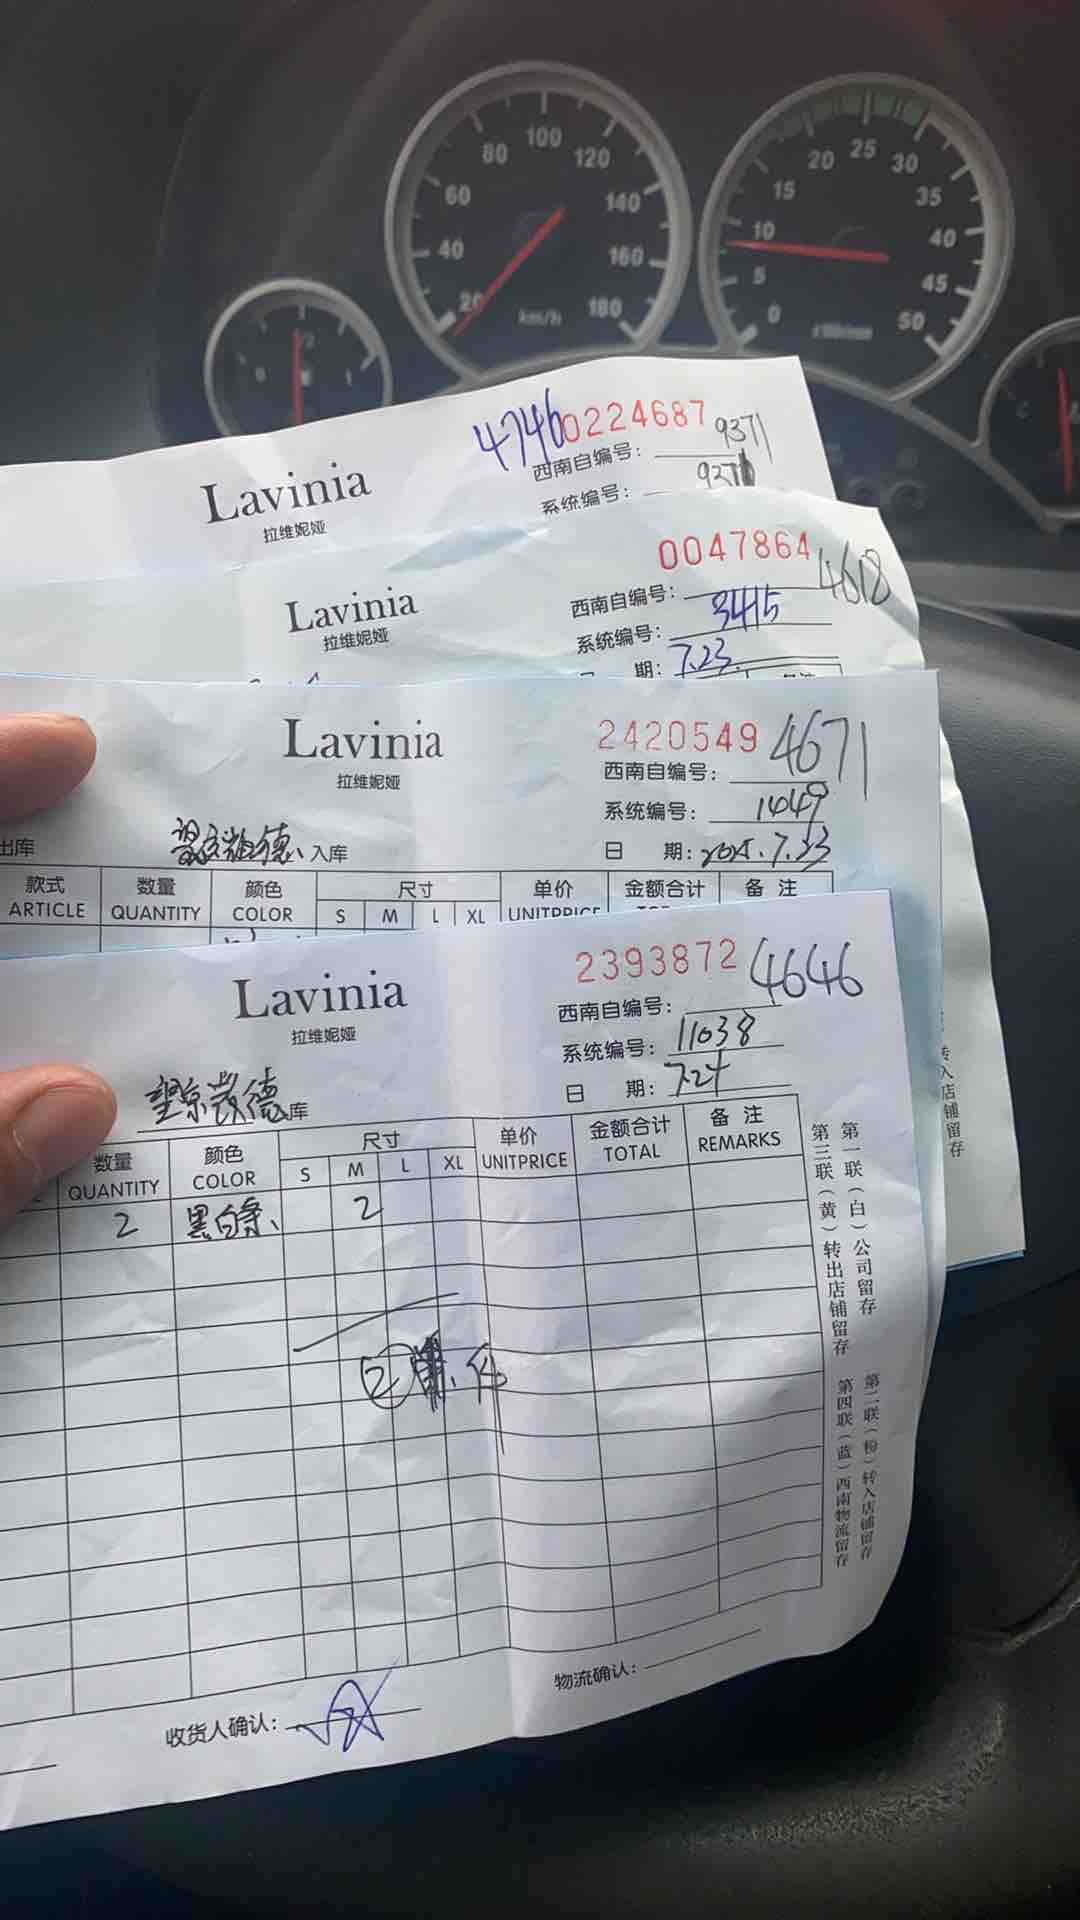 80 100 120
60 140
40 160
20 km/h 180
20 25 30
15 35
10 40
5 45
0 50
1/2
0 1
4746 0224687
西南自编号: 9371
系统编号:
Lavinia
拉维妮娅
0047864
西南自编号: 4618
系统编号: 3415
期: 7.23
Lavinia
拉维妮娅
2420549
西南自编号: 4671
系统编号: 1049
日 期: 2025.7.23
Lavinia
拉维妮娅
出库 入库
款式 数量 颜色 尺寸 单价 金额合计 备 注
ARTICLE QUANTITY COLOR S M L XL UNITPRICE
2393872
西南自编号: 4646
系统编号: 11038
日 期: 7.24
Lavinia
拉维妮娅
望京凯德库
数量 颜色 尺寸 单价 金额合计 备 注
QUANTITY COLOR S M L XL UNITPRICE TOTAL REMARKS
2 黑白条 2
② 件
第一联(白)公司留存 第二联(粉)转入店铺留存
第三联(黄)转出店铺留存 第四联(蓝)西南物流留存
转入店铺留存
收货人确认:
物流确认: